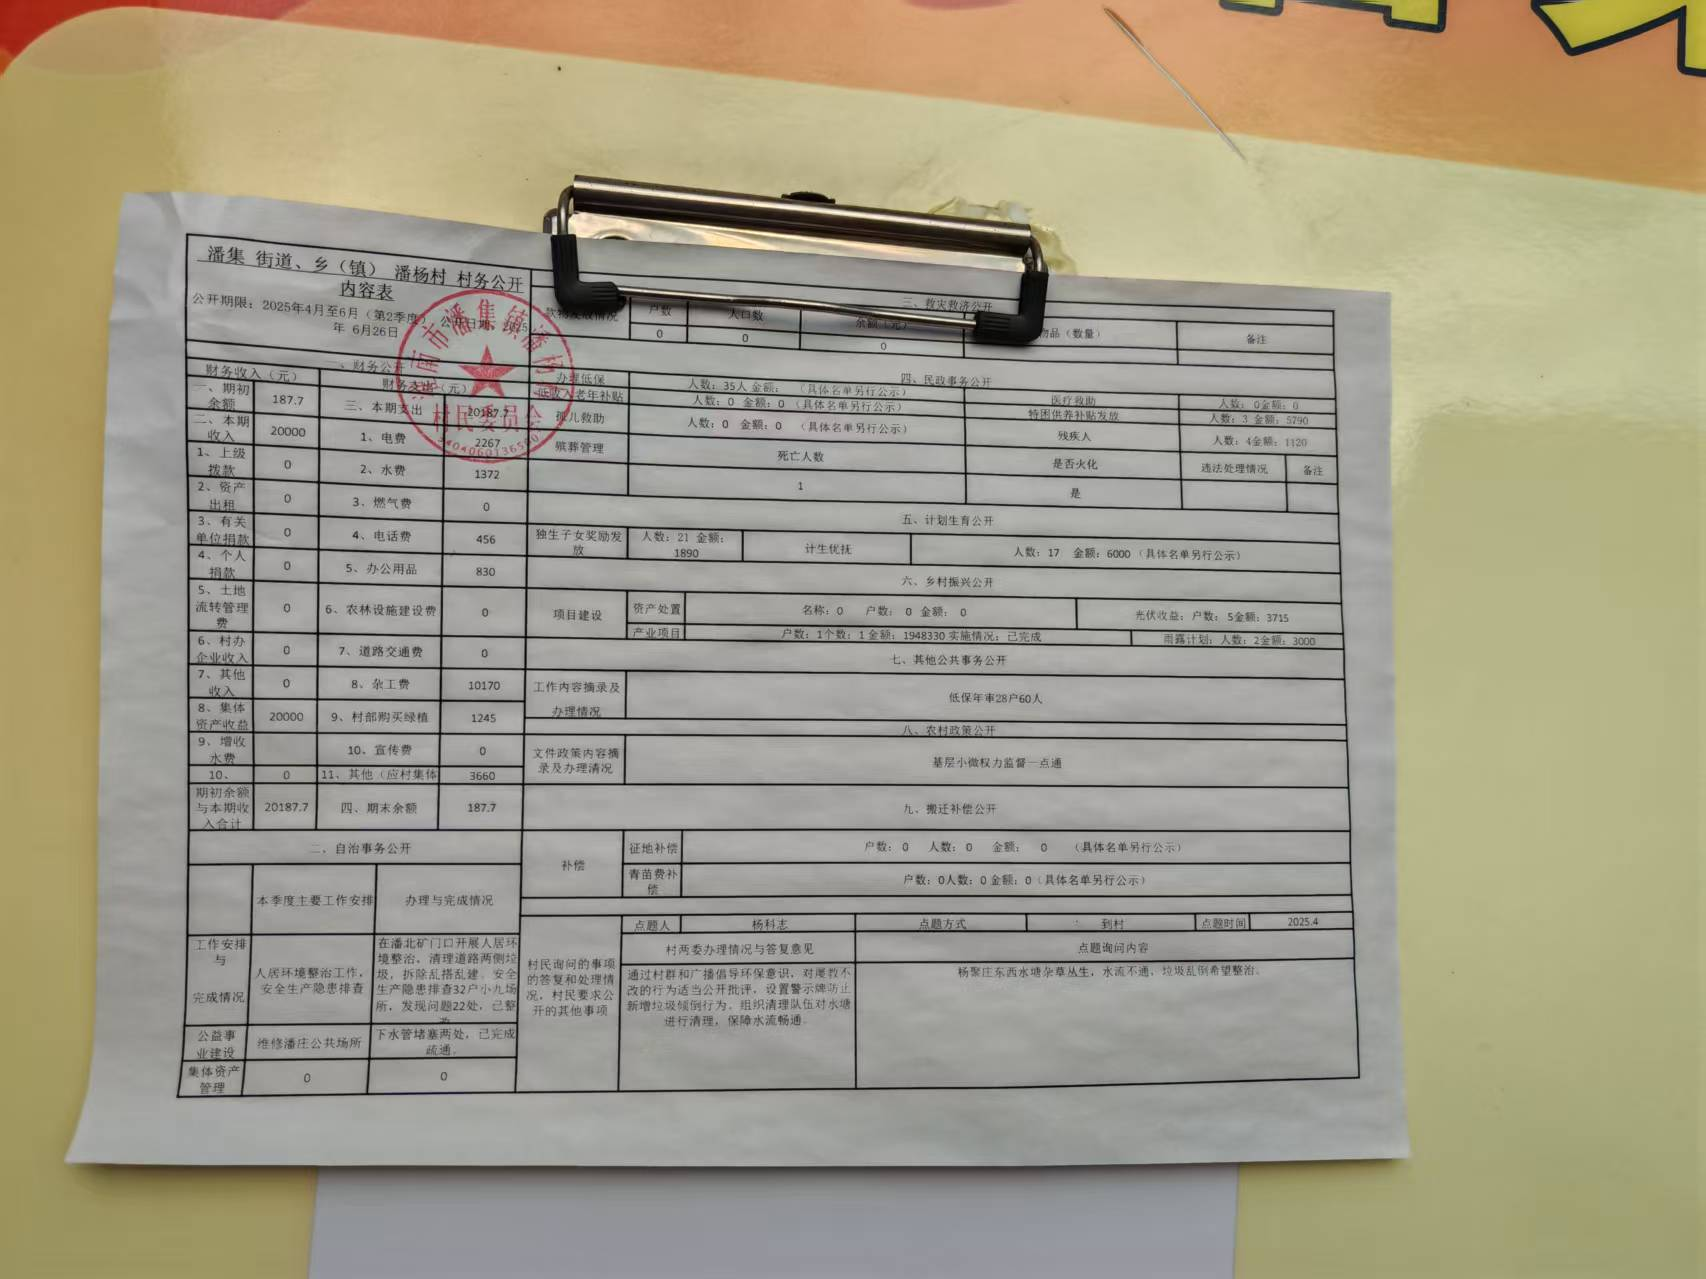 潘集 街道、乡（镇） 潘杨村 村务公开
内容表
公开期限：2025年4月至6月（第2季度） 公开日期：2025
年 6月26日
一、财务公开
财务收入（元） 财务支出（元）
一、期初余额 187.7 三、本期支出 20187.7
二、本期收入 20000 1、电费 2267
1、上级拨款 0 2、水费 1372
2、资产出租 0 3、燃气费 0
3、有关单位捐款 0 4、电话费 456
4、个人捐款 0 5、办公用品 830
5、土地流转管理费 0 6、农林设施建设费 0
6、村办企业收入 0 7、道路交通费 0
7、其他收入 0 8、杂工费 10170
8、集体资产收益 20000 9、村部购买绿植 1245
9、增收水费 10、宣传费 0
10、 0 11、其他（应村集体 3660
期初余额与本期收入合计 20187.7 四、期末余额 187.7
二、自治事务公开
本季度主要工作安排 办理与完成情况
工作安排
与
完成情况
人居环境整治工作，
安全生产隐患排查
在潘北矿门口开展人居环
境整治，清理道路两侧垃
圾，拆除乱搭乱建。安全
生产隐患排查32户小九场
所，发现问题22处，已整
公益事业建设 维修潘庄公共场所
下水管堵塞两处，已完成
疏通。
集体资产管理 0 0
三、救灾救济公开
款物发放情况 户数 人口数 余额（元） 物品（数量） 备注
0 0 0
四、民政事务公开
办理低保 人数：35人 金额： （具体名单另行公示） 医疗救助 人数：0金额：0
低收入老年补贴 人数：0 金额：0 （具体名单另行公示） 特困供养补贴发放 人数：3 金额：5790
孤儿救助 人数：0 金额：0 （具体名单另行公示） 残疾人 人数：4金额：1120
殡葬管理 死亡人数 是否火化 违法处理情况 备注
1 是
五、计划生育公开
独生子女奖励发放 人数：21 金额：1890 计生优抚 人数：17 金额：6000 （具体名单另行公示）
六、乡村振兴公开
项目建设 资产处置 名称：0 户数：0 金额：0 光伏收益：户数：5金额：3715
产业项目 户数：1个数：1 金额：1948330 实施情况：已完成 雨露计划：人数：2金额：3000
七、其他公共事务公开
工作内容摘录及
办理情况
低保年审28户60人
八、农村政策公开
文件政策内容摘
录及办理清况
基层小微权力监督一点通
九、搬迁补偿公开
补偿 征地补偿 户数：0 人数：0 金额： 0 （具体名单另行公示）
青苗费补偿 户数：0人数：0 金额：0（具体名单另行公示）
点题人 杨科志 点题方式 到村 点题时间 2025.4
村民询问的事项
的答复和处理情
况，村民要求公
开的其他事项
村两委办理情况与答复意见 点题询问内容
通过村群和广播倡导环保意识，对屡教不
改的行为适当公开批评，设置警示牌防止
新增垃圾倾倒行为。组织清理队伍对水塘
进行清理，保障水流畅通。
杨聚庄东西水塘杂草丛生，水流不通，垃圾乱倒希望整治。
村民委员会